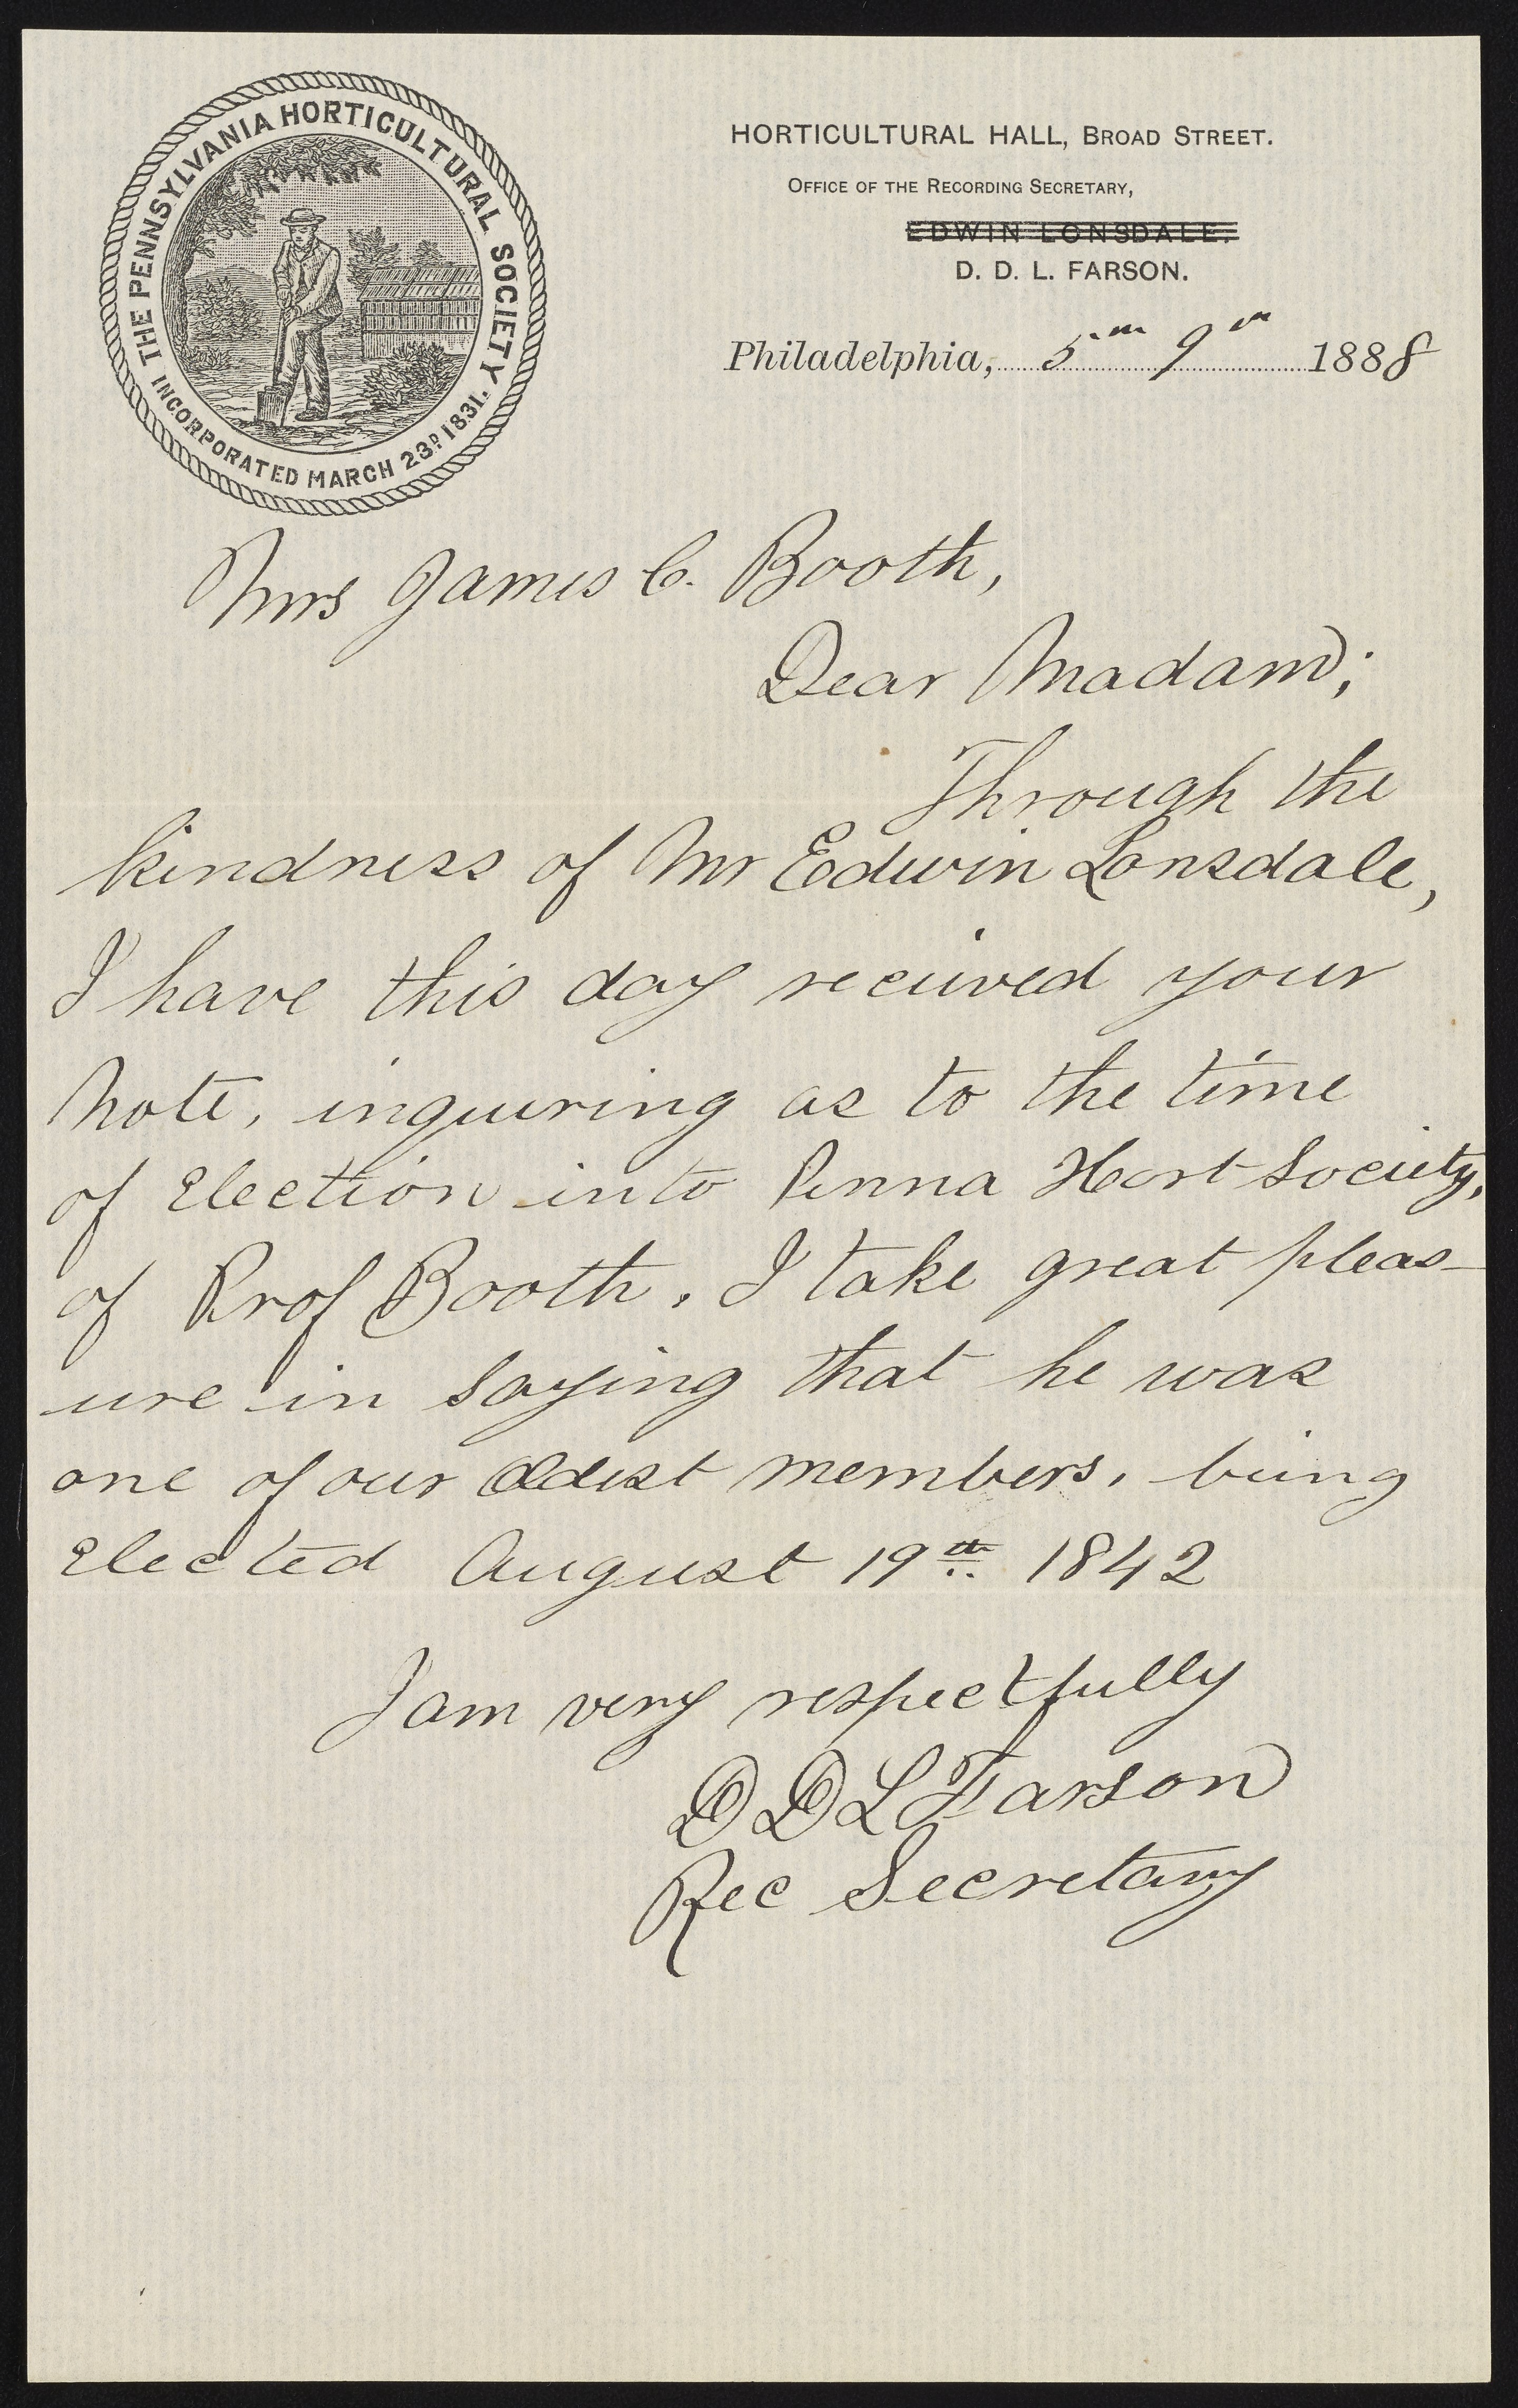 THE PENNSYLVANIA HORTICULTURAL SOCIETY
INCORPORATED MARCH 23D 1831.
HORTICULTURAL HALL, BROAD STREET.
OFFICE OF THE RECORDING SECRETARY,
EDWIN LONSDALE.
D. D. L. FARSON.
Philadelphia, 5m 9th 1888
Mrs James C. Booth,
Dear Madam;
Through the
kindness of Mr Edwin Lonsdale,
I have this day received your
Note, inquiring as to the time
of Election into Penna Hort Society,
of Prof Booth. I take great pleas-
ure in saying that he was
one of our Oldest members, being
Elected August 19th 1842
I am very respectfully
D D L Farson
Rec Secretary